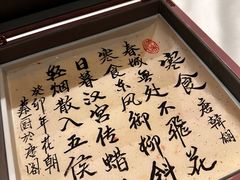 寒食 唐 韩翃
春城无处不飞花
寒食东风御柳斜
日暮汉宫传蜡
轻烟散入五侯
癸卯年花朝